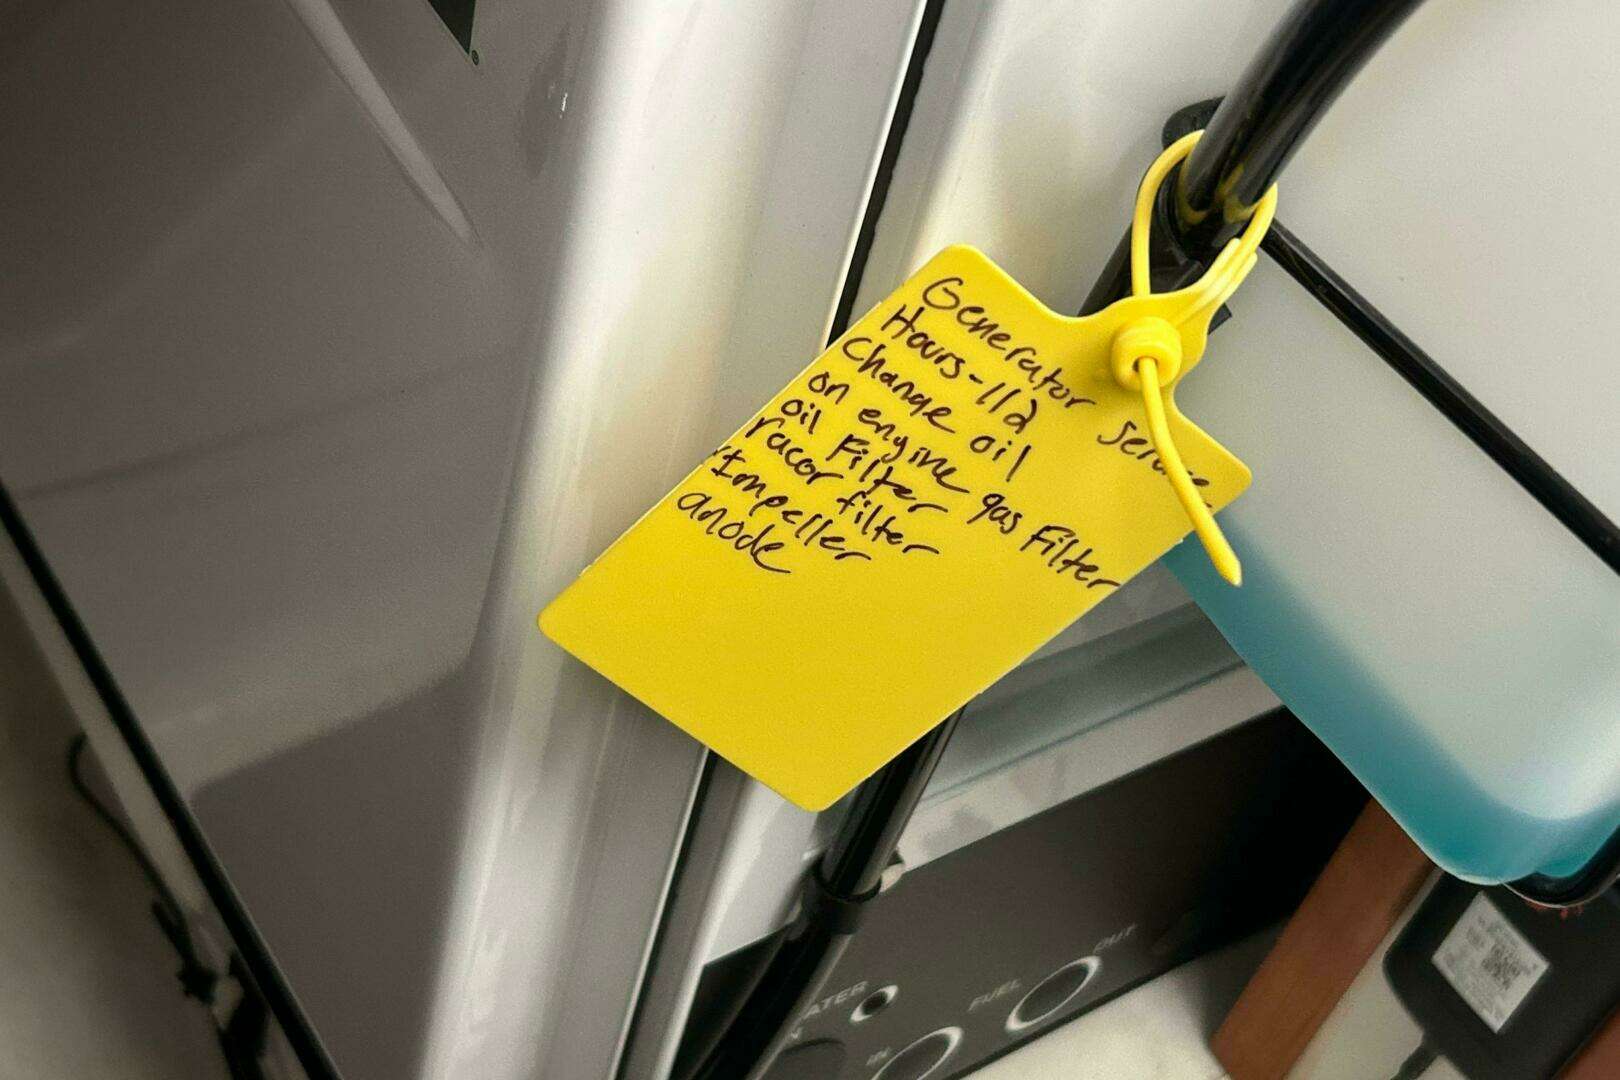 Generator Service
Hours-112
Change oil
on engine gas Filter
oil Filter
racor filter
Impeller
anode
FUEL
OUT
IN